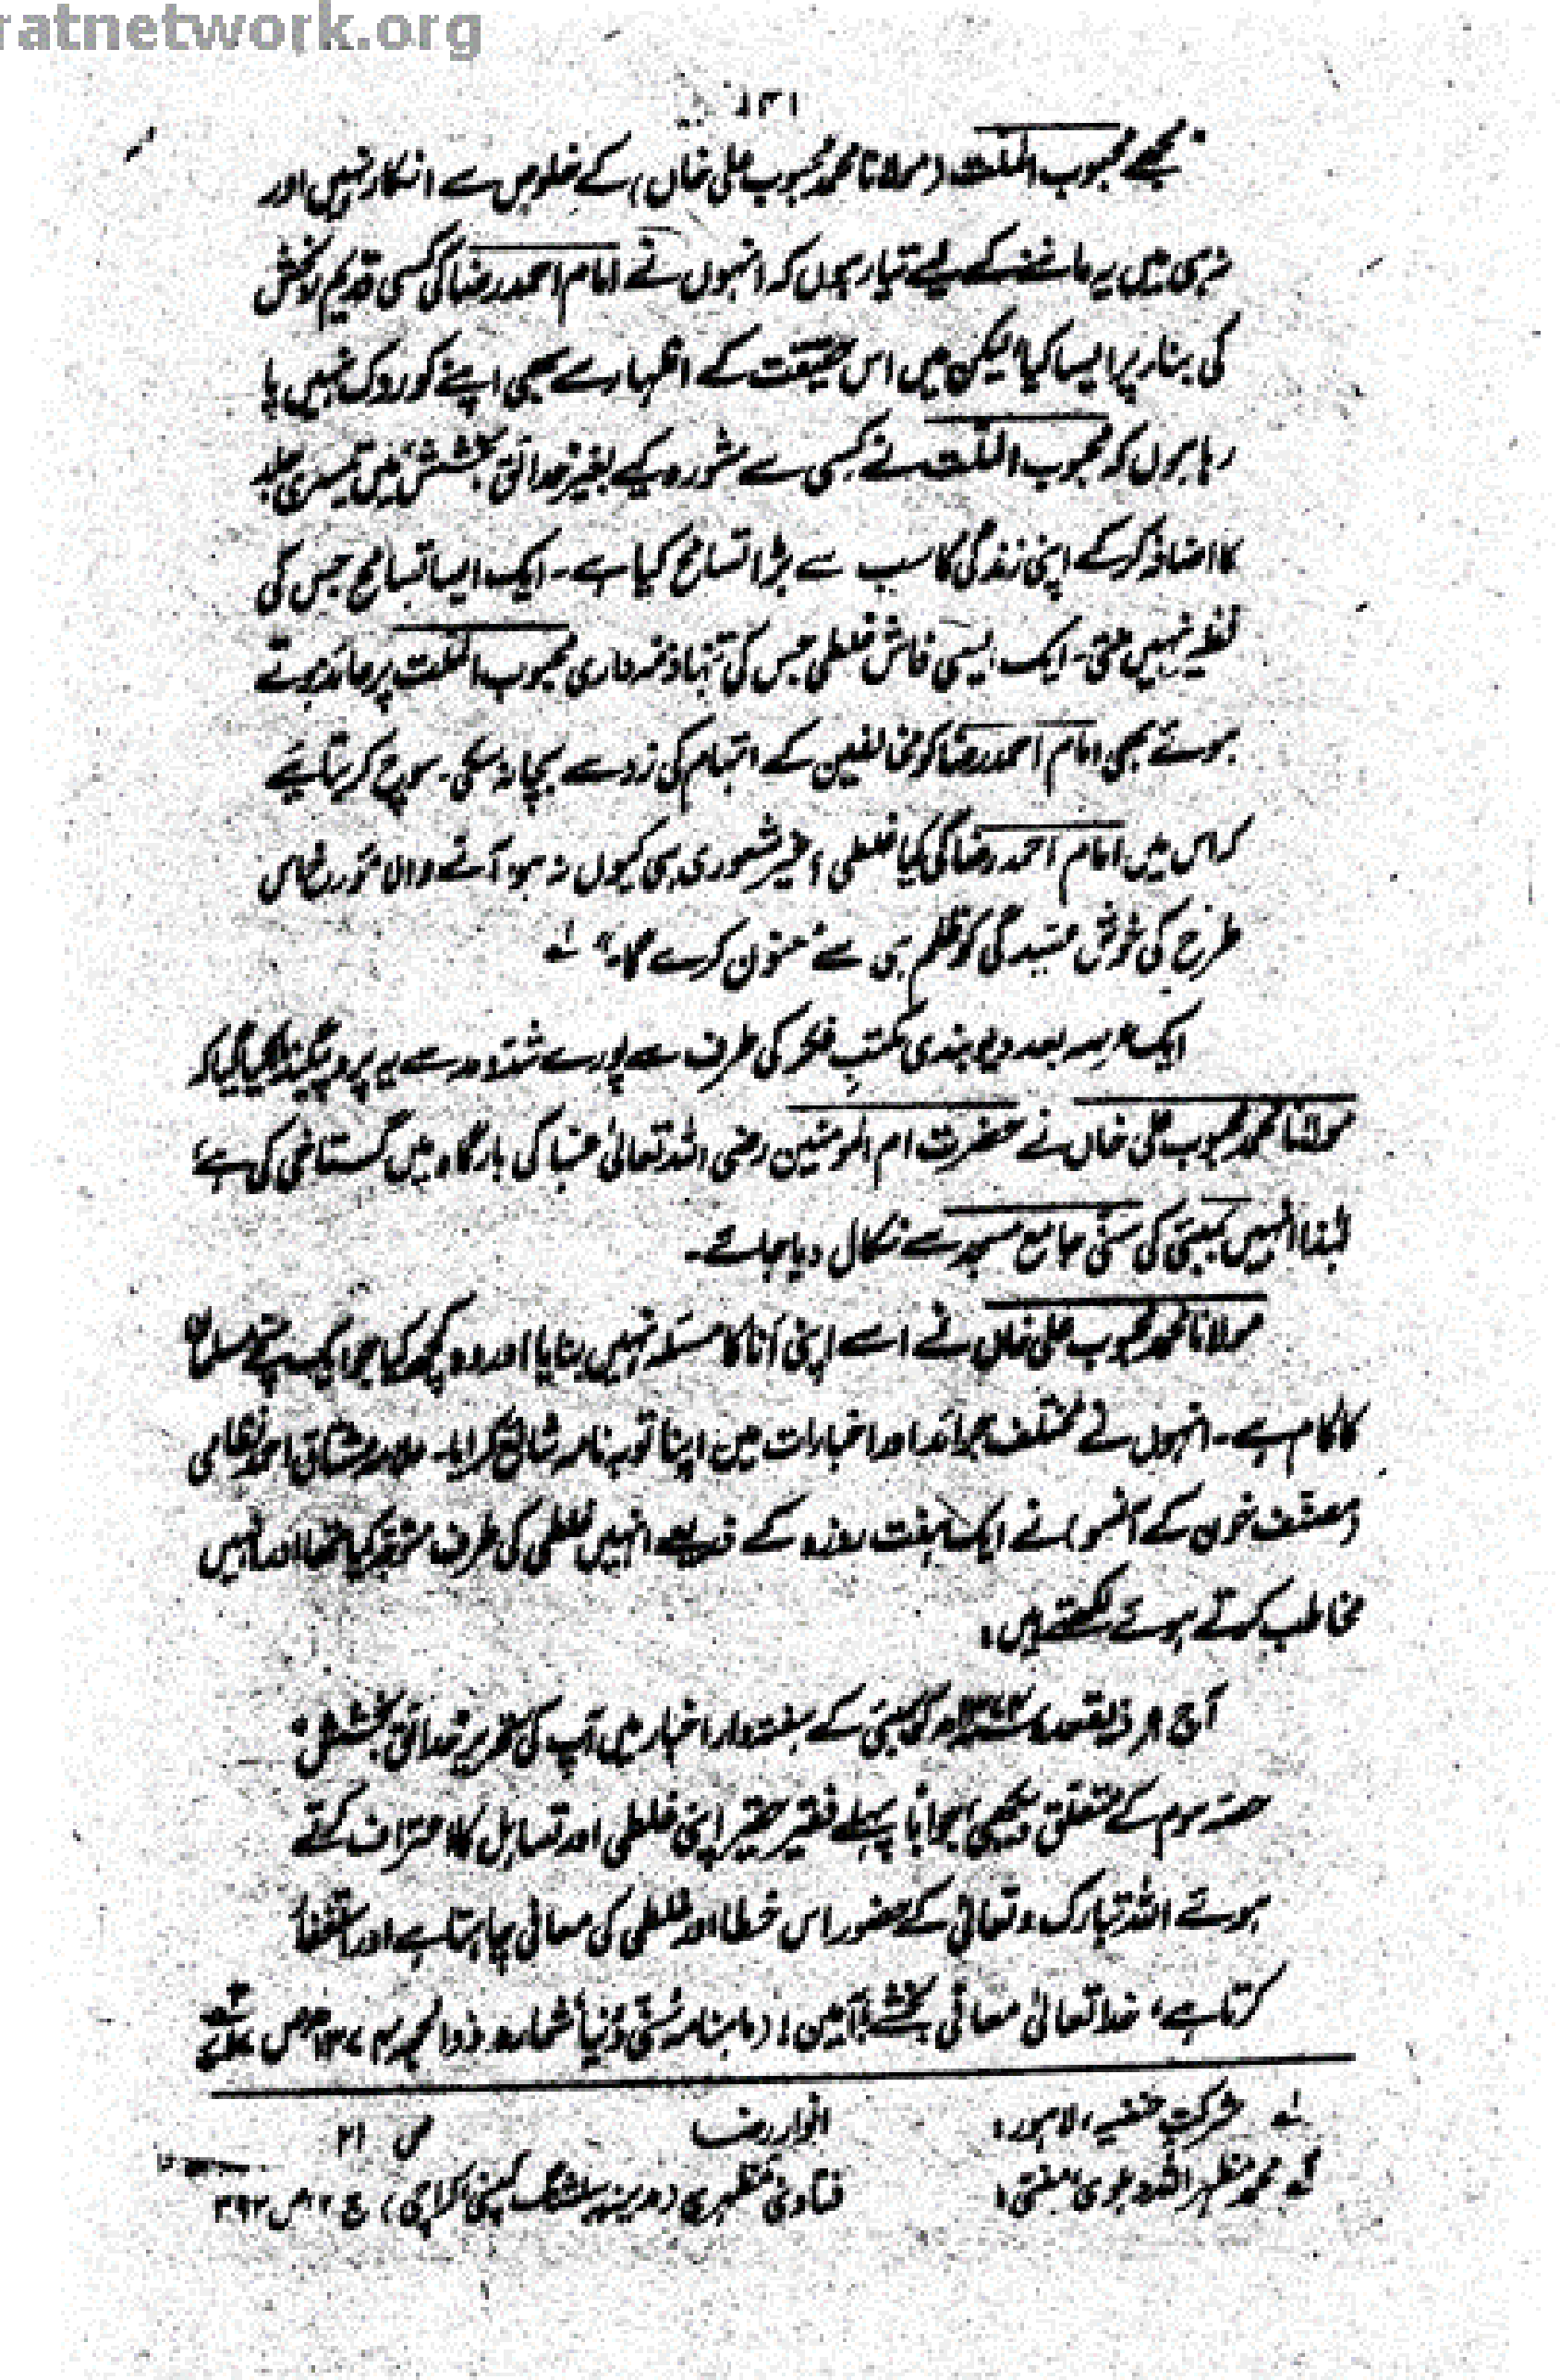 ratnetwork.org
۱۳۱
"مجھے محبوب الملت (مولانا محمد محبوب علی خاں) کے خلوص سے انکار نہیں اور
نہ ہی میں یہ ماننے کے لیے تیار ہوں کہ انہوں نے امام احمد رضا کی کسی قدیم رنجش
کی بنار پر ایسا کیا لیکن میں اس حقیقت کے اظہار سے بھی اپنے کو روک نہیں پا
رہا ہوں کہ محبوب الملت نے کسی سے مشورہ کیے بغیر حدائق بخشش میں تیسری جلد
کا اضافہ کرکے اپنی زندگی کا سب سے بڑا تسامح کیا ہے۔ ایک ایسا تسامح جس کی
نظیر نہیں ملتی۔ ایک ایسی فاش غلطی جس کی تنہا ذمہ داری محبوب الملت پر عائد ہوتے
ہوئے بھی امام احمد رضا کو مخالفین کے اتہام کی زد سے بچا نہ سکی۔ سوچ کر بتائیے
کہ اس میں امام احمد رضا کی کیا غلطی؟ غیر شعوری ہی کیوں نہ ہو، آنے والا مؤرخ اس
طرح کی خوش عقیدگی کو ظلم ہی سے معنون کرے گا۔" لہ
ایک عرصہ بعد دیوبندی مکتبِ فکر کی طرف سے پورے شدّ و مد سے یہ پروپیگنڈا کیا گیا کہ
مولانا محمد محبوب علی خاں نے حضرت ام المومنین رضی اللہ تعالیٰ عنہا کی بارگاہ میں گستاخی کی ہے
لہٰذا انہیں بمبئی کی سنی جامع مسجد سے نکال دیا جائے۔
مولانا محمد محبوب علی خاں نے اسے اپنی اَنا کا مسئلہ نہیں بنایا اور وہ کچھ کیا جو ایک سچے مسلمان
کا کام ہے۔ انہوں نے مختلف جرائد اور اخبارات میں اپنا توبہ نامہ شائع کرایا۔ علامہ مشتاق احمد نظامی
(مصنف خون کے آنسو) نے ایک ہفت روزہ کے ذریعے انہیں غلطی کی طرف متوجہ کیا تھا اور انہیں
مخاطب کرتے ہوئے لکھتے ہیں:
آج ۹ ذیقعدہ ۱۳۷۴ھ کو بمبئی کے ہفتہ وار اخبار میں آپ کی تحریر حدائق بخشش
حصہ سوم کے متعلق دیکھی، جواباً پہلے فقیر حقیر اپنی غلطی اور تساہل کا اعتراف کرتے
ہوئے اللہ تبارک و تعالیٰ کے حضور اس خطا اور غلطی کی معافی چاہتا ہے اور استغفار
کرتا ہے، خدا تعالیٰ معافی بخشے، آمین! (ماہنامہ سنّی دنیا شمارہ ذوالحجہ ۱۳۷۴ھ ص
لہ شرکت حنفیہ، لاہور: انوار رضا ص ۲۱
محمد مظہر اللہ دہلوی، مفتی: فتاویٰ مظہری (مدینہ پبلشنگ کمپنی کراچی) ج ۲، ص ۳۹۲